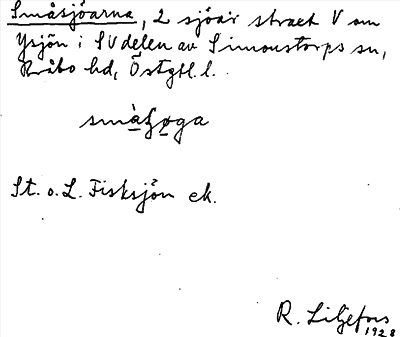 Småsjöarna, 2 sjöar strax V om
Ysjön i SV delen av Simonstorps sn,
Bråbo hd, Östgtl. l.
små̀ʃø̀ga
St. o. L. Fisksjön ek.
R. Liljefors
1928